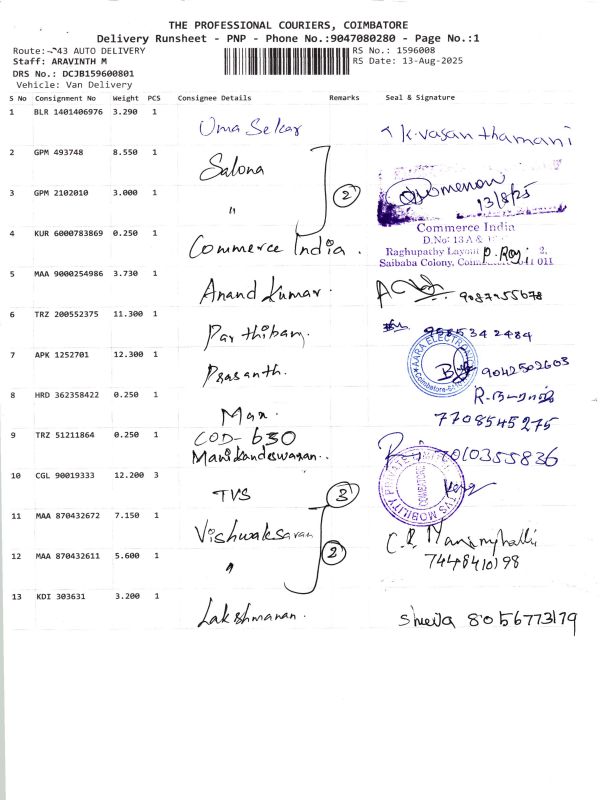 THE PROFESSIONAL COURIERS, COIMBATORE
Delivery Runsheet - PNP - Phone No.:9047080280 - Page No.:1
Route: 43 AUTO DELIVERY
RS No.: 1596008
Staff: ARAVINTH M
RS Date: 13-Aug-2025
DRS No.: DCJB159600801
Vehicle: Van Delivery
S No Consignment No Weight PCS Consignee Details Remarks Seal & Signature
1 BLR 1401406976 3.290 1 Uma Sekar K.vasanthamani
2 GPM 493748 8.550 1 Salona
3 GPM 2102010 3.000 1 " 2 13/8/25
4 KUR 6000783869 0.250 1 Commerce India.
Commerce India
D.No: 13 A &
Raghupathy Layout 2,
Saibaba Colony, 641 011
5 MAA 9000254986 3.730 1 Anand Kumar.
6 TRZ 200552375 11.300 1 Parthiban. 9585342484
7 APK 1252701 12.300 1 Prasanth. AARA ELECTRON Coimbatore 9042502603
8 HRD 362358422 0.250 1 Max. 7708545275
9 TRZ 51211864 0.250 1 COD- 630
Manikandeswaran.. 7010355836
10 CGL 90019333 12.200 3 TVS 3 TVS MOBILITY PRIVATE COIMBATORE
11 MAA 870432672 7.150 1 Vishwaksaran
12 MAA 870432611 5.600 1 " 2 7448410198
13 KDI 303631 3.200 1 Lakshmanan. Sheela 8056773179